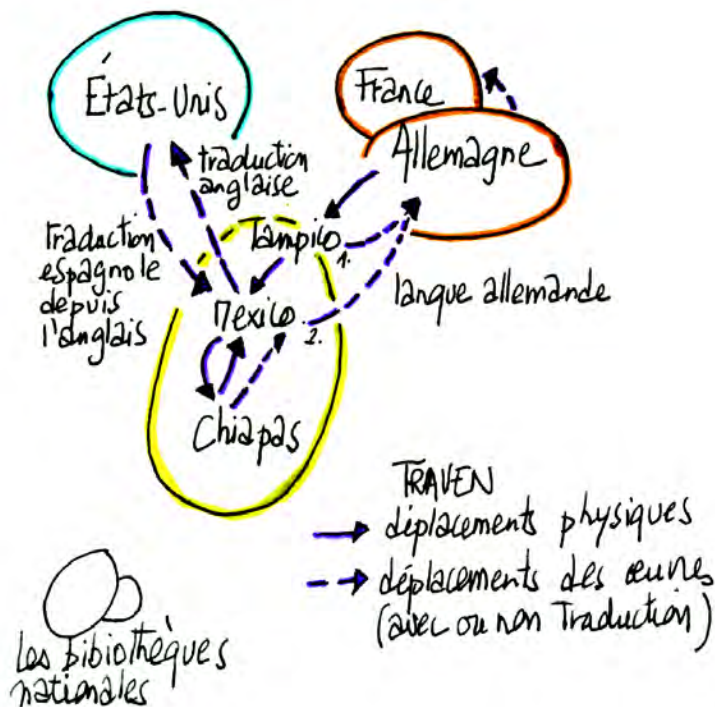 États-Unis
France
Allemagne
traduction
anglaise
Tampico
1.
Traduction
espagnole
depuis
l'anglais
Mexico
2.
langue allemande
Chiapas
TRAVEN
déplacements physiques
déplacements des œuvres
(avec ou non Traduction)
Les bibiothèques
nationales